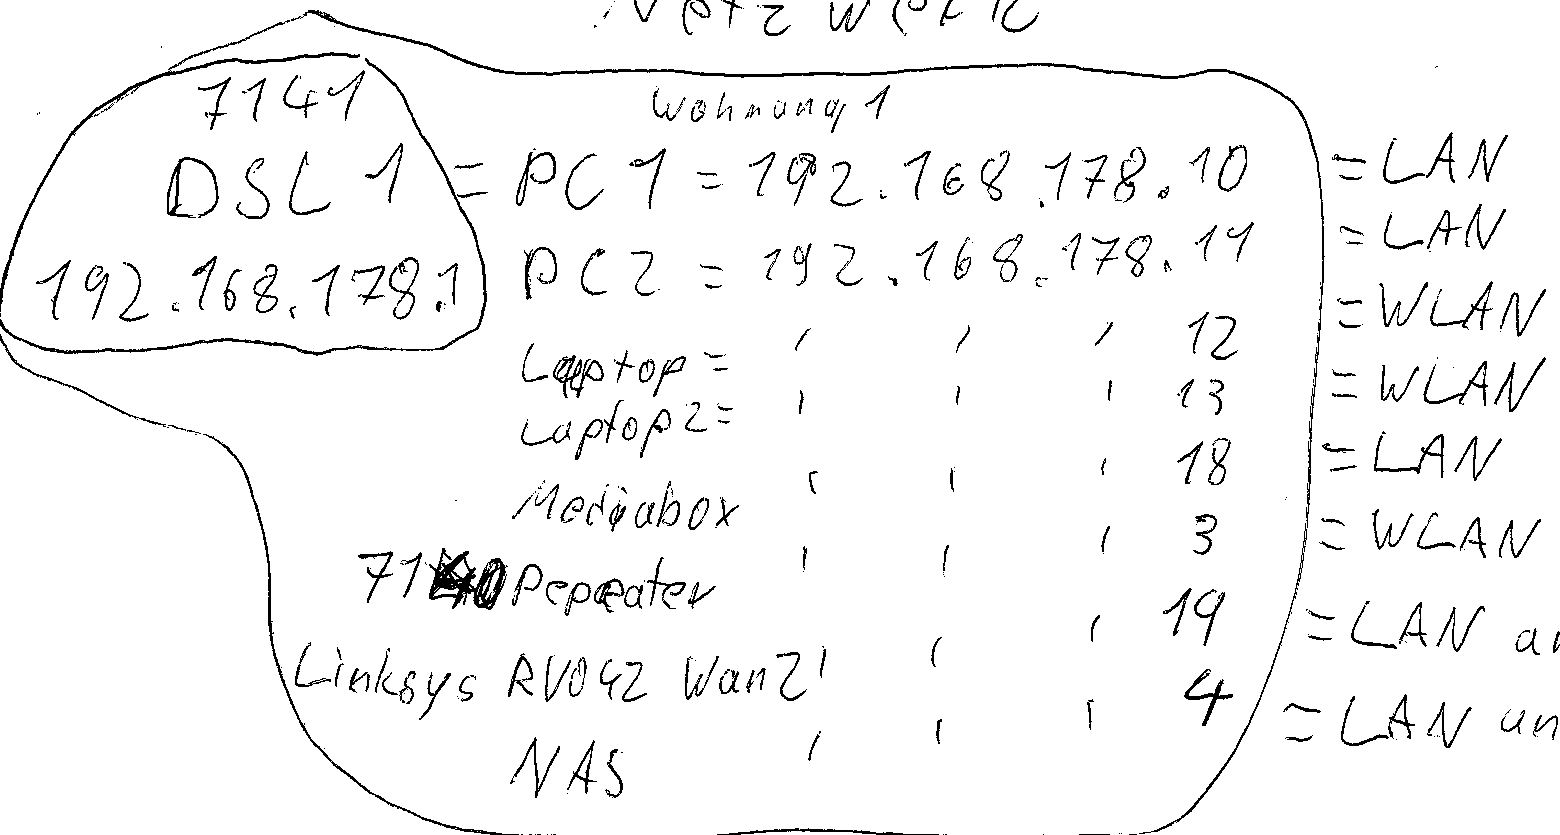 Netzwerk
7141
Wohnung 1
DSL 1 = PC 1 = 192.168.178.10 = LAN
192.168.178.1 PC2 = 192.168.178.11 = LAN
Laptop = ' ' ' 12 = WLAN
Laptop 2 = ' ' ' 13 = WLAN
Mediabox ' ' ' 18 = LAN
7140 Repeater ' ' ' 3 = WLAN
Linksys RV042 Wan2 ' ' ' 19 = LAN
NAS ' ' ' 4 = LAN